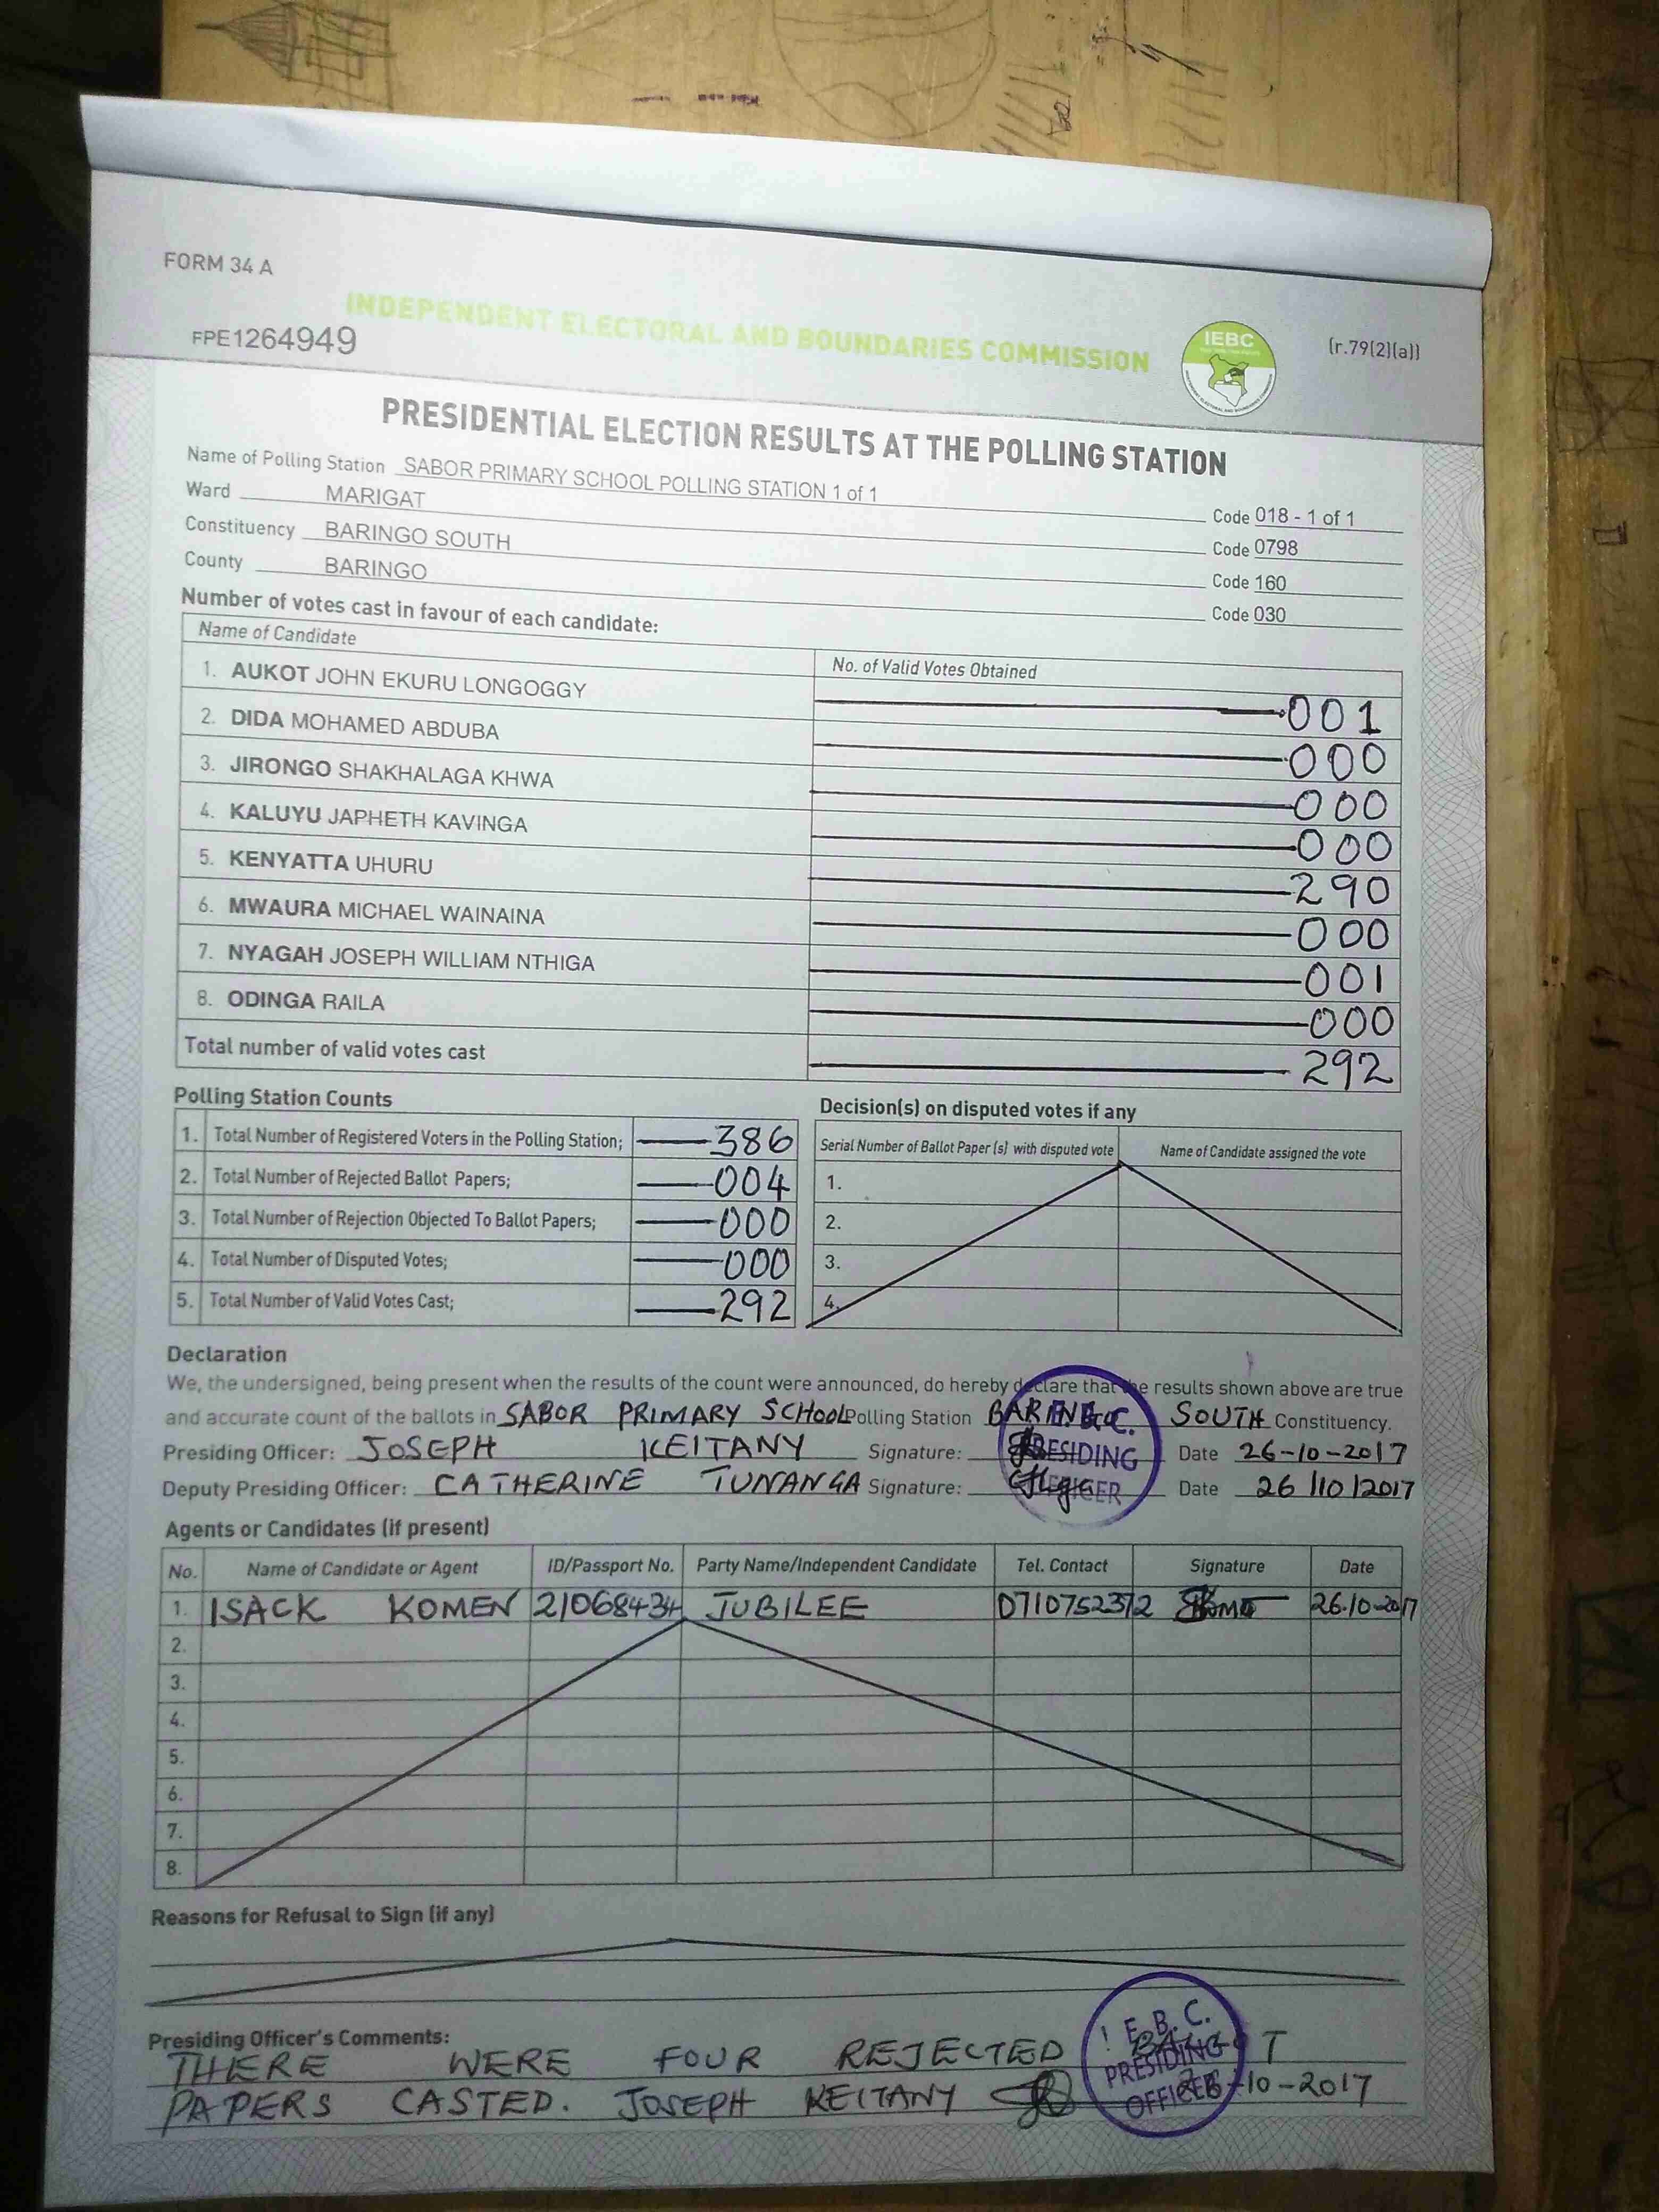 FORM 34 A
INDEPENDENT ELECTORAL AND BOUNDARIES COMMISSION
IEBC
(r.79(2)(a))
FPE1264949
PRESIDENTIAL ELECTION RESULTS AT THE POLLING STATION
Name of Polling Station SABOR PRIMARY SCHOOL POLLING STATION 1 of 1 Code 018 - 1 of 1
Ward MARIGAT Code 0798
Constituency BARINGO SOUTH Code 160
County BARINGO Code 030
Number of votes cast in favour of each candidate:
Name of Candidate No. of Valid Votes Obtained
1. AUKOT JOHN EKURU LONGOGGY 001
2. DIDA MOHAMED ABDUBA 000
3. JIRONGO SHAKHALAGA KHWA 000
4. KALUYU JAPHETH KAVINGA 000
5. KENYATTA UHURU 290
6. MWAURA MICHAEL WAINAINA 000
7. NYAGAH JOSEPH WILLIAM NTHIGA 001
8. ODINGA RAILA 000
Total number of valid votes cast 292
Polling Station Counts
1. Total Number of Registered Voters in the Polling Station; 386
2. Total Number of Rejected Ballot Papers; 004
3. Total Number of Rejection Objected To Ballot Papers; 000
4. Total Number of Disputed Votes; 000
5. Total Number of Valid Votes Cast; 292
Decision(s) on disputed votes if any
Serial Number of Ballot Paper (s) with disputed vote Name of Candidate assigned the vote
1.
2.
3.
4.
Declaration
We, the undersigned, being present when the results of the count were announced, do hereby declare that the results shown above are true
and accurate count of the ballots in SABOR PRIMARY SCHOOL Polling Station BARINGO SOUTH Constituency.
Presiding Officer: JOSEPH KEITANY Signature: Date 26-10-2017
Deputy Presiding Officer: CATHERINE TUNANGA Signature: Date 26/10/2017
PRESIDING
OFFICER
Agents or Candidates (if present)
No. Name of Candidate or Agent ID/Passport No. Party Name/Independent Candidate Tel. Contact Signature Date
1. ISACK KOMEN 21068434 JUBILEE 0710752372 26.10.2017
2.
3.
4.
5.
6.
7.
8.
Reasons for Refusal to Sign (if any)
Presiding Officer's Comments:
THERE WERE FOUR REJECTED BALLOT
PAPERS CASTED. JOSEPH KEITANY 26-10-2017
I.E.B.C.
PRESIDING
OFFICER